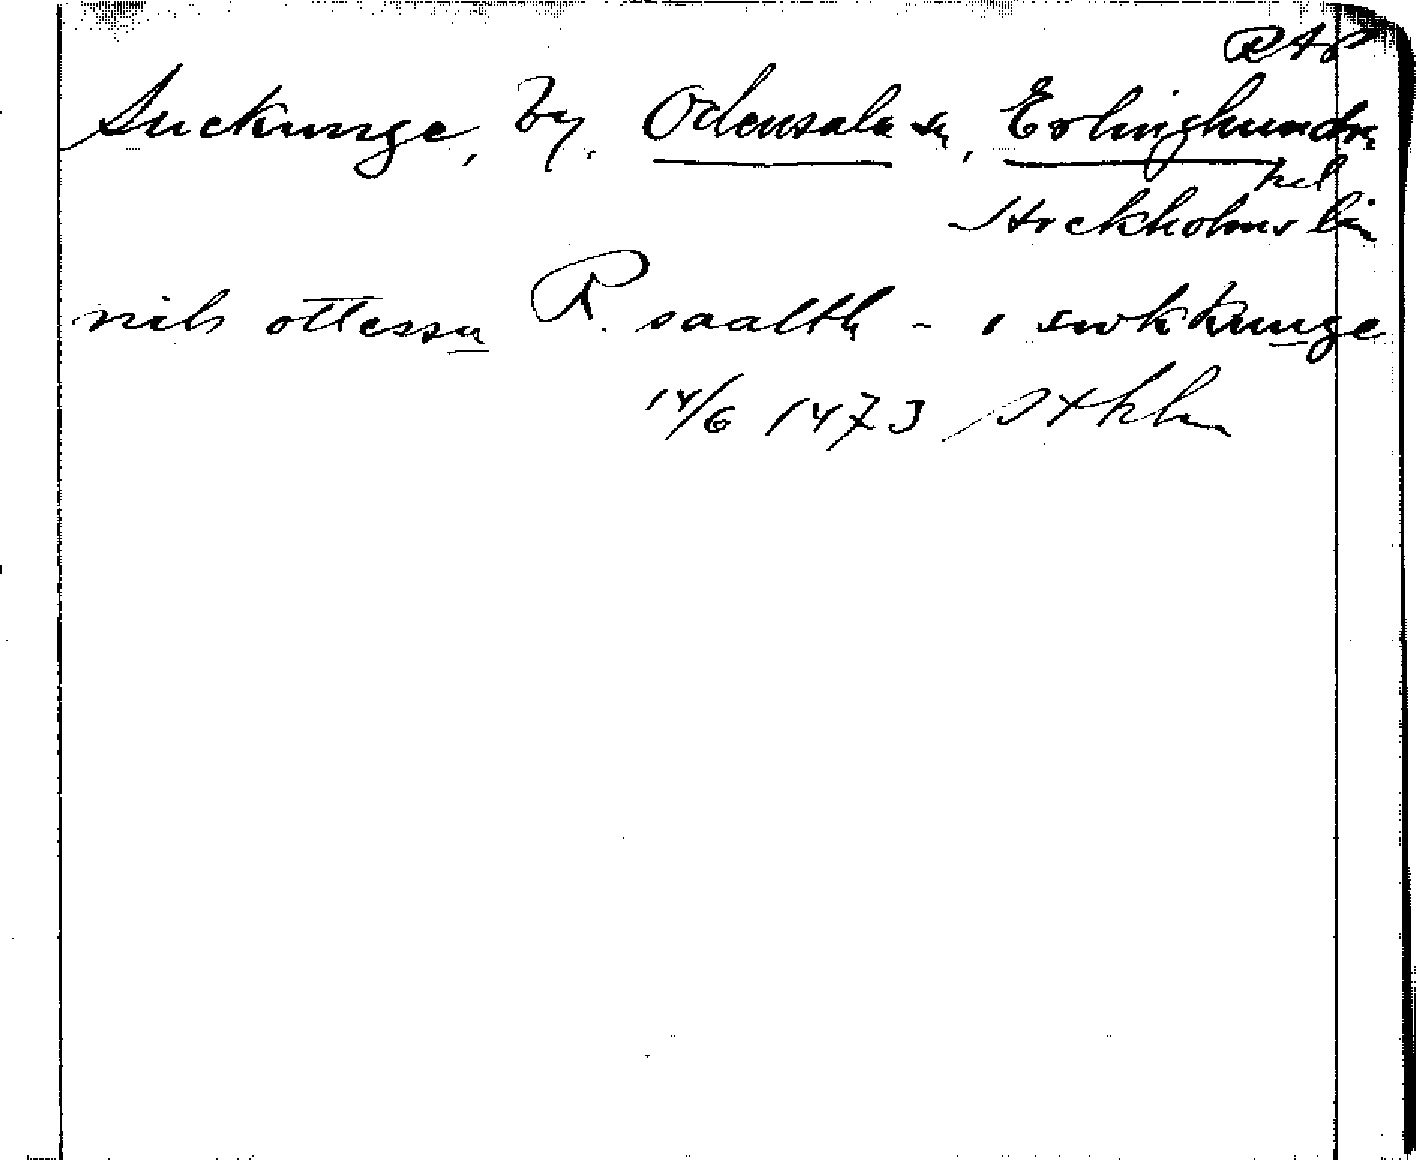 RAP
Suckunge, by. Odensala sn, Erlinghundra
hd
Stockholms län
nils ottessu R. saalth - i swkkunge
14/6 1473 Sthlm